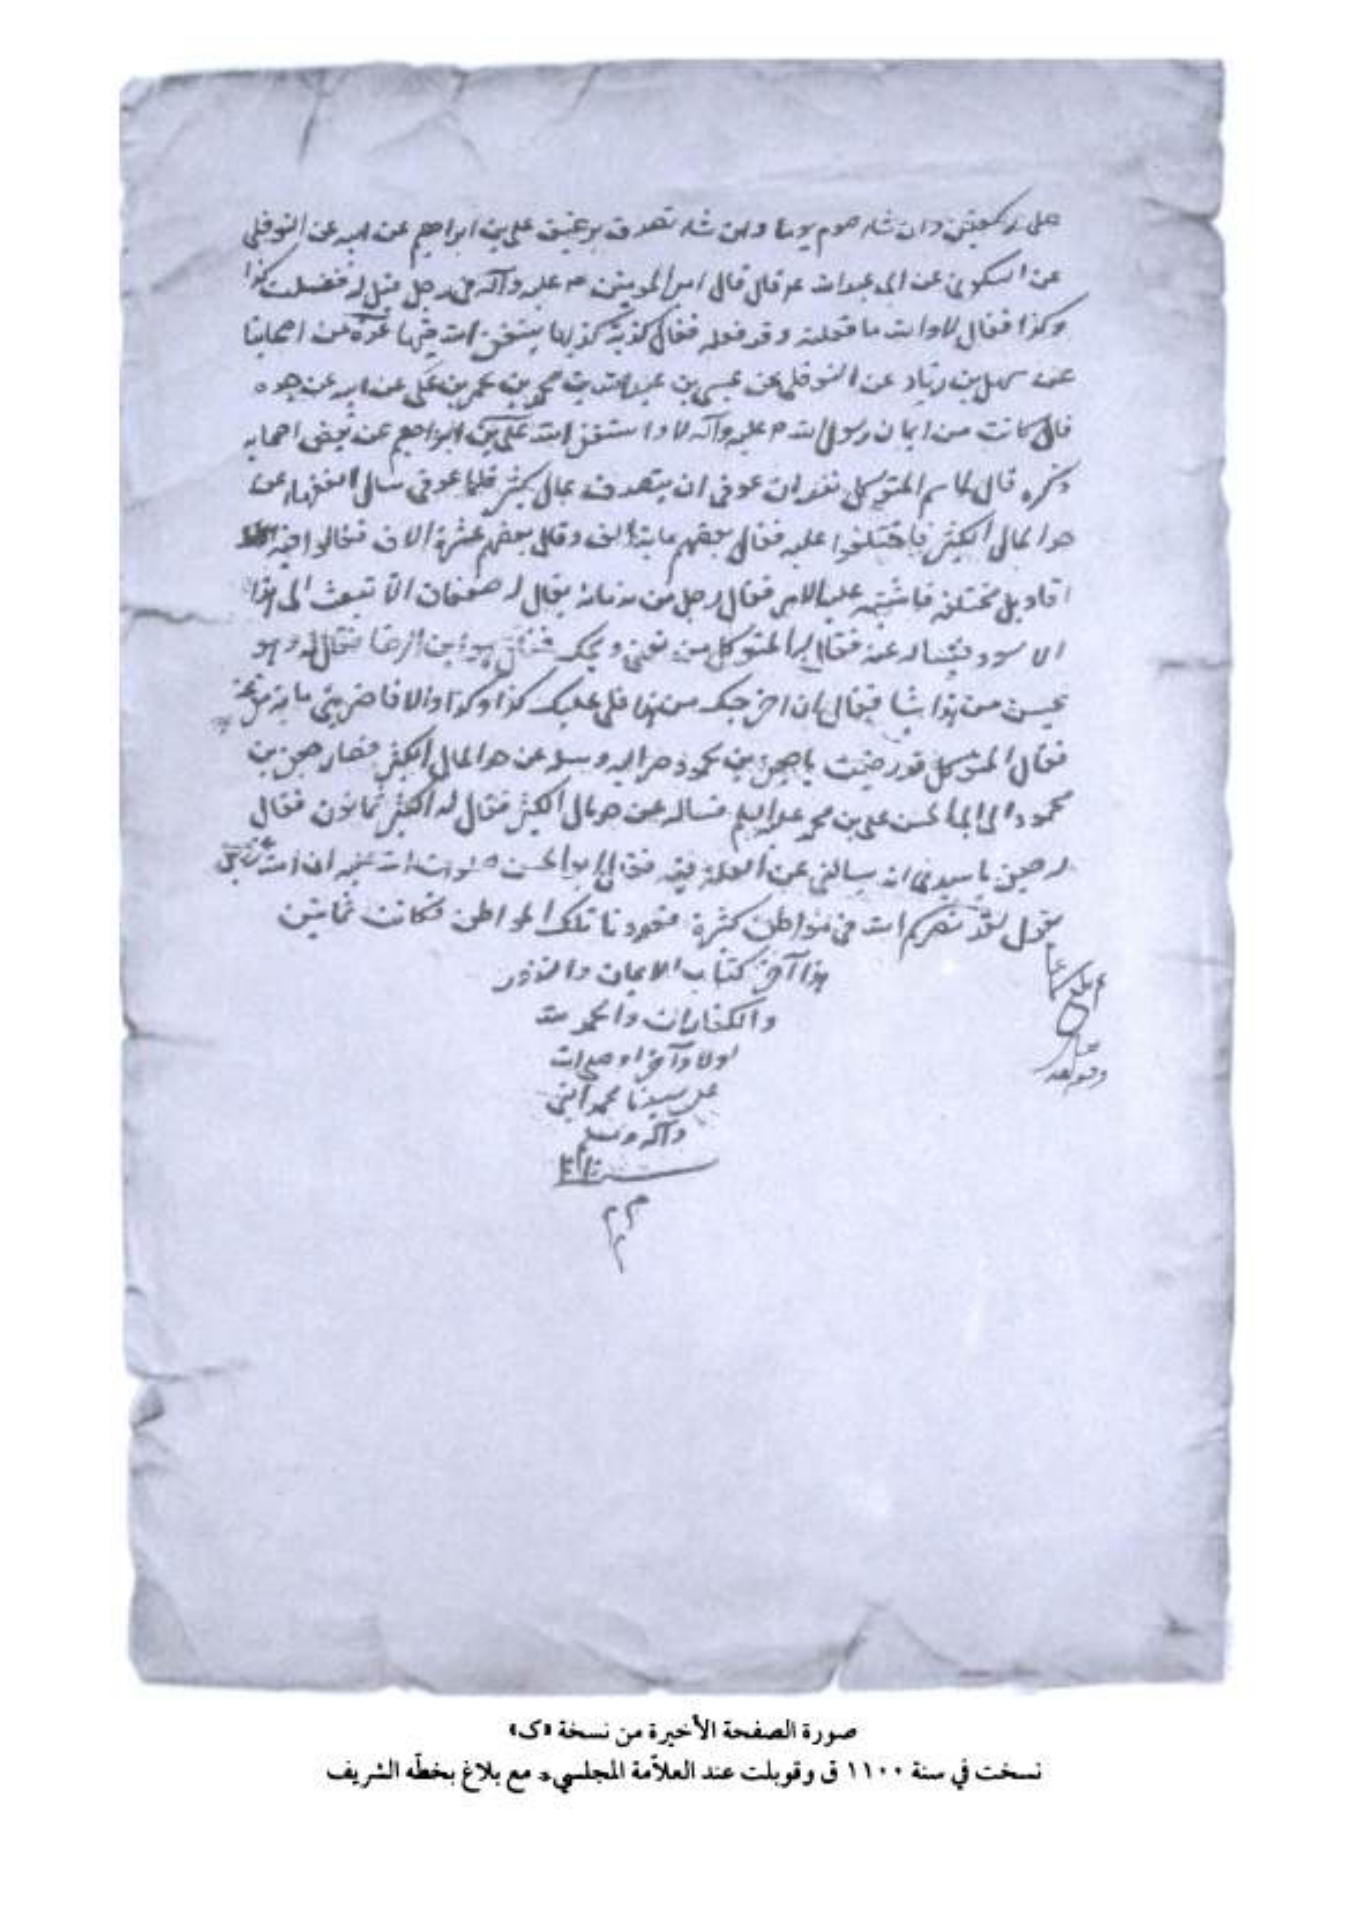 صلى ركعتين وان شاء صوم يوما وان شاء تصدق برغيف علي بن ابراهيم عن ابيه عن النوفلي
عن السكوني عن ابي عبدالله ع قال قال امير المؤمنين ص عليه وآله في رجل قيل له فعلت كذا
وكذا فقال لا والله ما فعلته وقد فعله فقال كذبة كذبها يستغفر الله منها عدة من اصحابنا
عن سهل بن زياد عن النوفلي عن عيسى بن عبدالله بن محمد بن عمر بن علي عن ابيه عن جده
قال كانت من ايمان رسول الله ص عليه وآله لا واستغفر الله علي بن ابراهيم عن بعض اصحابه
ذكره قال لما سم المتوكل نذر ان عوفي ان يتصدق بمال كثير فلما عوفي سال الفقهاء عن
حد المال الكثير فاختلفوا عليه فقال بعضهم ماية الف وقال بعضهم عشرة الاف فقالوا فيه
اقاويل مختلفة فاشتبه عليه الامر فقال رجل من ندمائه يقال له صفعان الا تبعث الى هذا
الاسود فيساله عنه فقال له المتوكل من تعني ويحك فقال ابن الرضا فقال له وهو
يحسن من هذا شيا فقال ان اخرجك من هذا فلي عليك كذا وكذا والا فاضربني ماية مقرعة
فقال المتوكل قد رضيت يا جعفر بن محمود صر اليه وسله عن حد المال الكثير فصار جعفر بن
محمود الى ابي الحسن علي بن محمد عليه السلم فساله عن حد مال الكثير فقال له الكثير ثمانون فقال
له جعفر يا سيدي انه يسالني عن العلة فيه فقال ابو الحسن صلوات الله عليه ان الله
يقول لقد نصركم الله في مواطن كثيرة فعددنا تلك المواطن فكانت ثمانين
هذا آخر كتاب الايمان والنذور
والكفارات والحمد لله
اولا وآخرا وصلى الله
على سيدنا محمد النبي
وآله وسلم
صورة الصفحة الأخيرة من نسخة «ك»
نسخت في سنة ١١٠٠ ق وقوبلت عند العلاّمة المجلسي مع بلاغ بخطّه الشريف